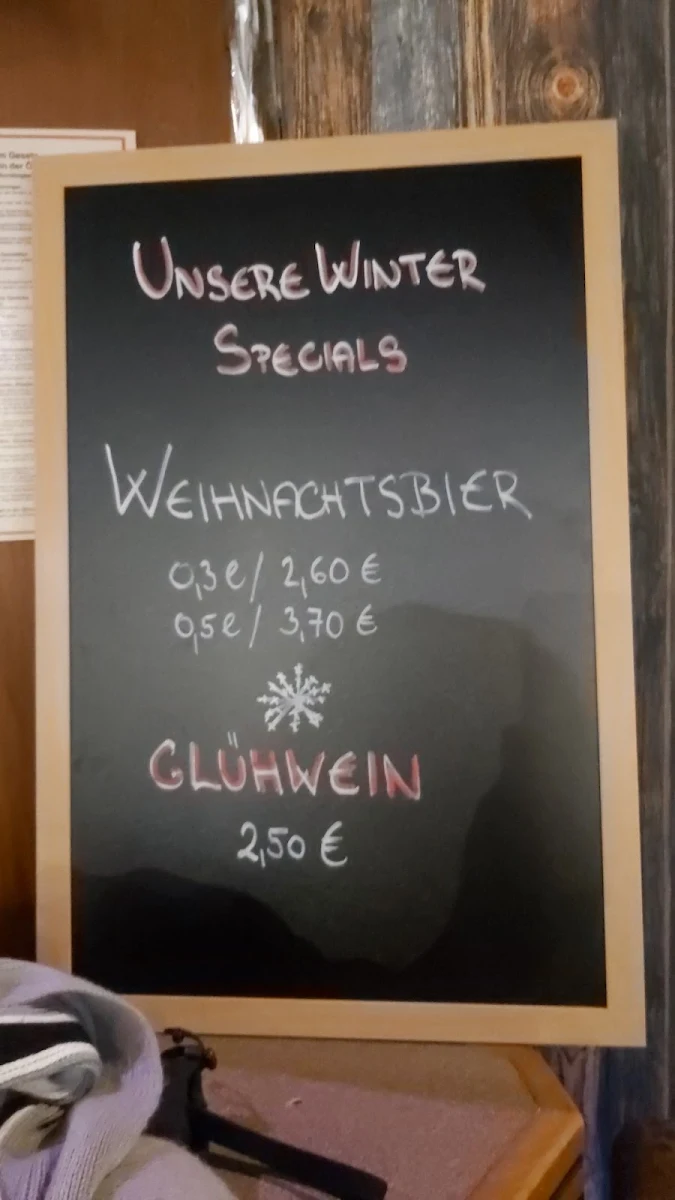 UNSERE WINTER
SPECIALS
WEIHNACHTSBIER
0,3l / 2,60 €
0,5l / 3,70 €
GLÜHWEIN
2,50 €